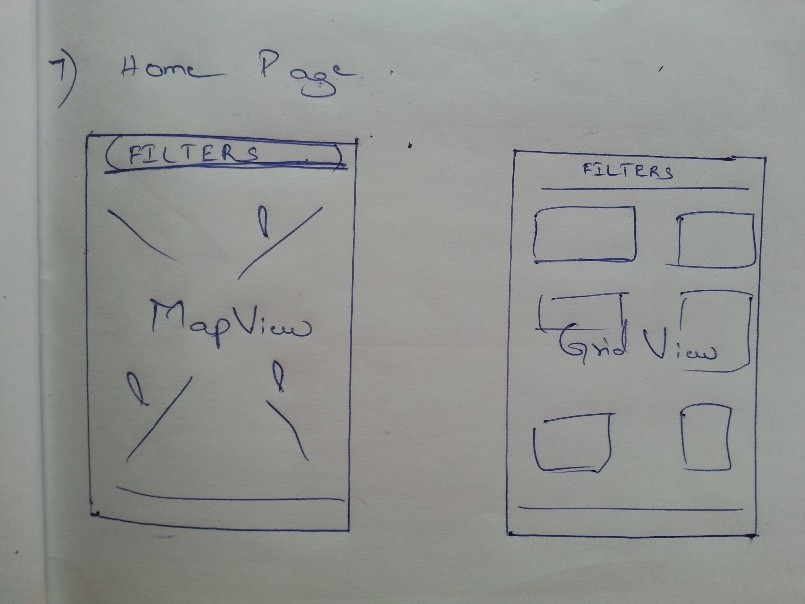 1) Home Page.
FILTERS
MapView
FILTERS
Grid View